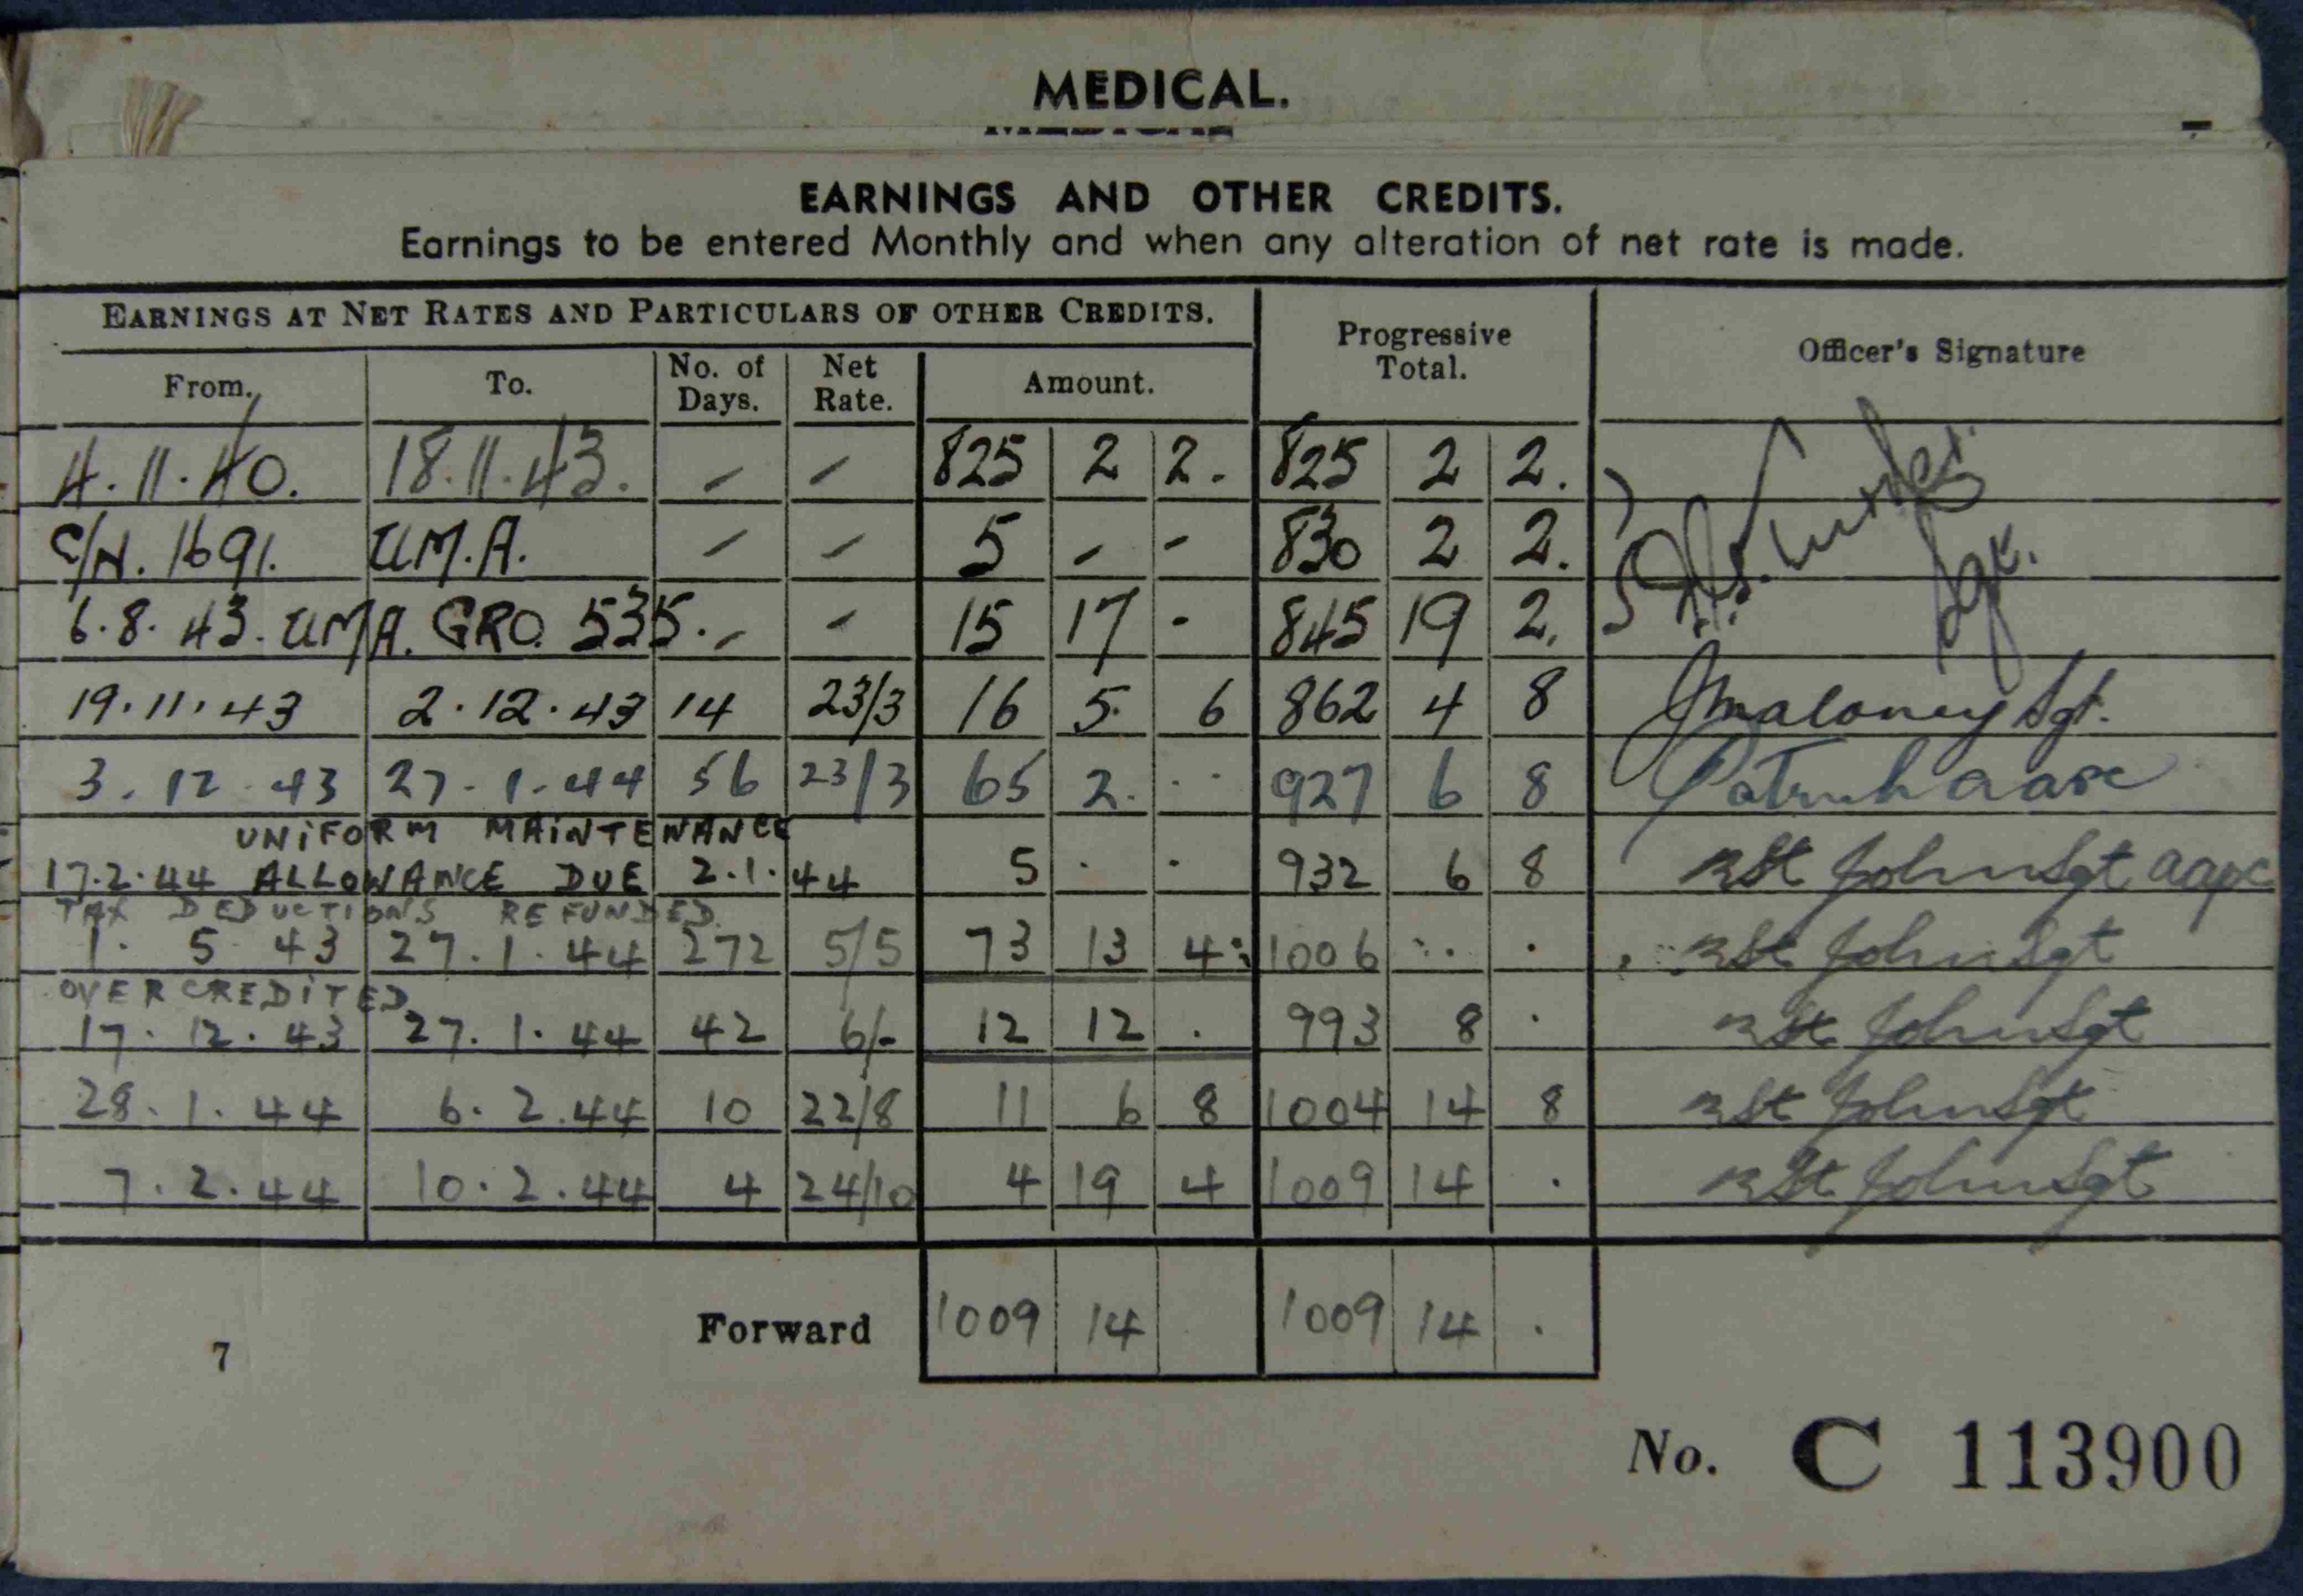 MEDICAL.
EARNINGS AND OTHER CREDITS.
Earnings to be entered Monthly and when any alteration of net rate is made.
EARNINGS AT NET RATES AND PARTICULARS OF OTHER CREDITS.
Progressive Total.
Officer's Signature
From. To. No. of Days. Net Rate. Amount.
4.11.40. 18.11.43. - - 825 2 2. 825 2 2.
C/N. 1691. U.M.A. - - 5 - - 830 2 2.
6.8.43. UMA. GRO. 535. - - 15 17 - 845 19 2.
19.11.43 2.12.43 14 23/3 16 5. 6 862 4 8 Maloney Sgt.
3.12.43 27.1.44 56 23/3 65 2. . . 927 6 8
UNIFORM MAINTENANCE
17.2.44 ALLOWANCE DUE 2.1.44 5 . . 932 6 8 St John Sgt aapc
TAX DEDUCTIONS REFUNDED.
1. 5 43 27.1.44 272 5/5 73 13 4 1006 . . St John Sgt
OVERCREDITED
17.12.43 27.1.44 42 6/- 12 12 . 993 8 . St John Sgt
28.1.44 6.2.44 10 22/8 11 6 8 1004 14 8 St John Sgt
7.2.44 10.2.44 4 24/10 4 19 4 1009 14 . St John Sgt
Forward 1009 14 1009 14 .
7
No. C 113900